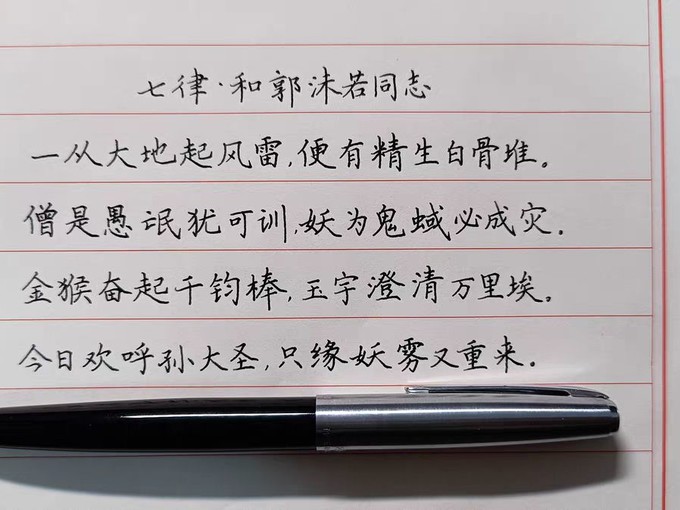 七律·和郭沫若同志
一从大地起风雷,便有精生白骨堆。
僧是愚氓犹可训,妖为鬼蜮必成灾.
金猴奋起千钧棒,玉宇澄清万里埃。
今日欢呼孙大圣,只缘妖雾又重来.